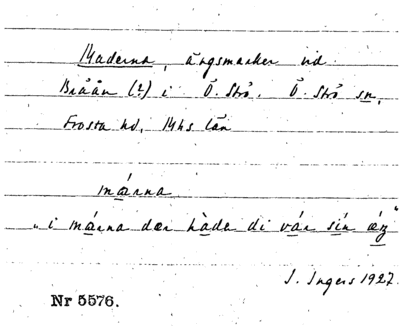 Maderna, ängsmarker vid
Bråån (?) i Ö. Strö. Ö. Strö sn,
Frosta hd, Mhs län
márna
"i márna dær hàde di vár sín ǽŋ"
I. Ingers 1927.
Nr 5576.